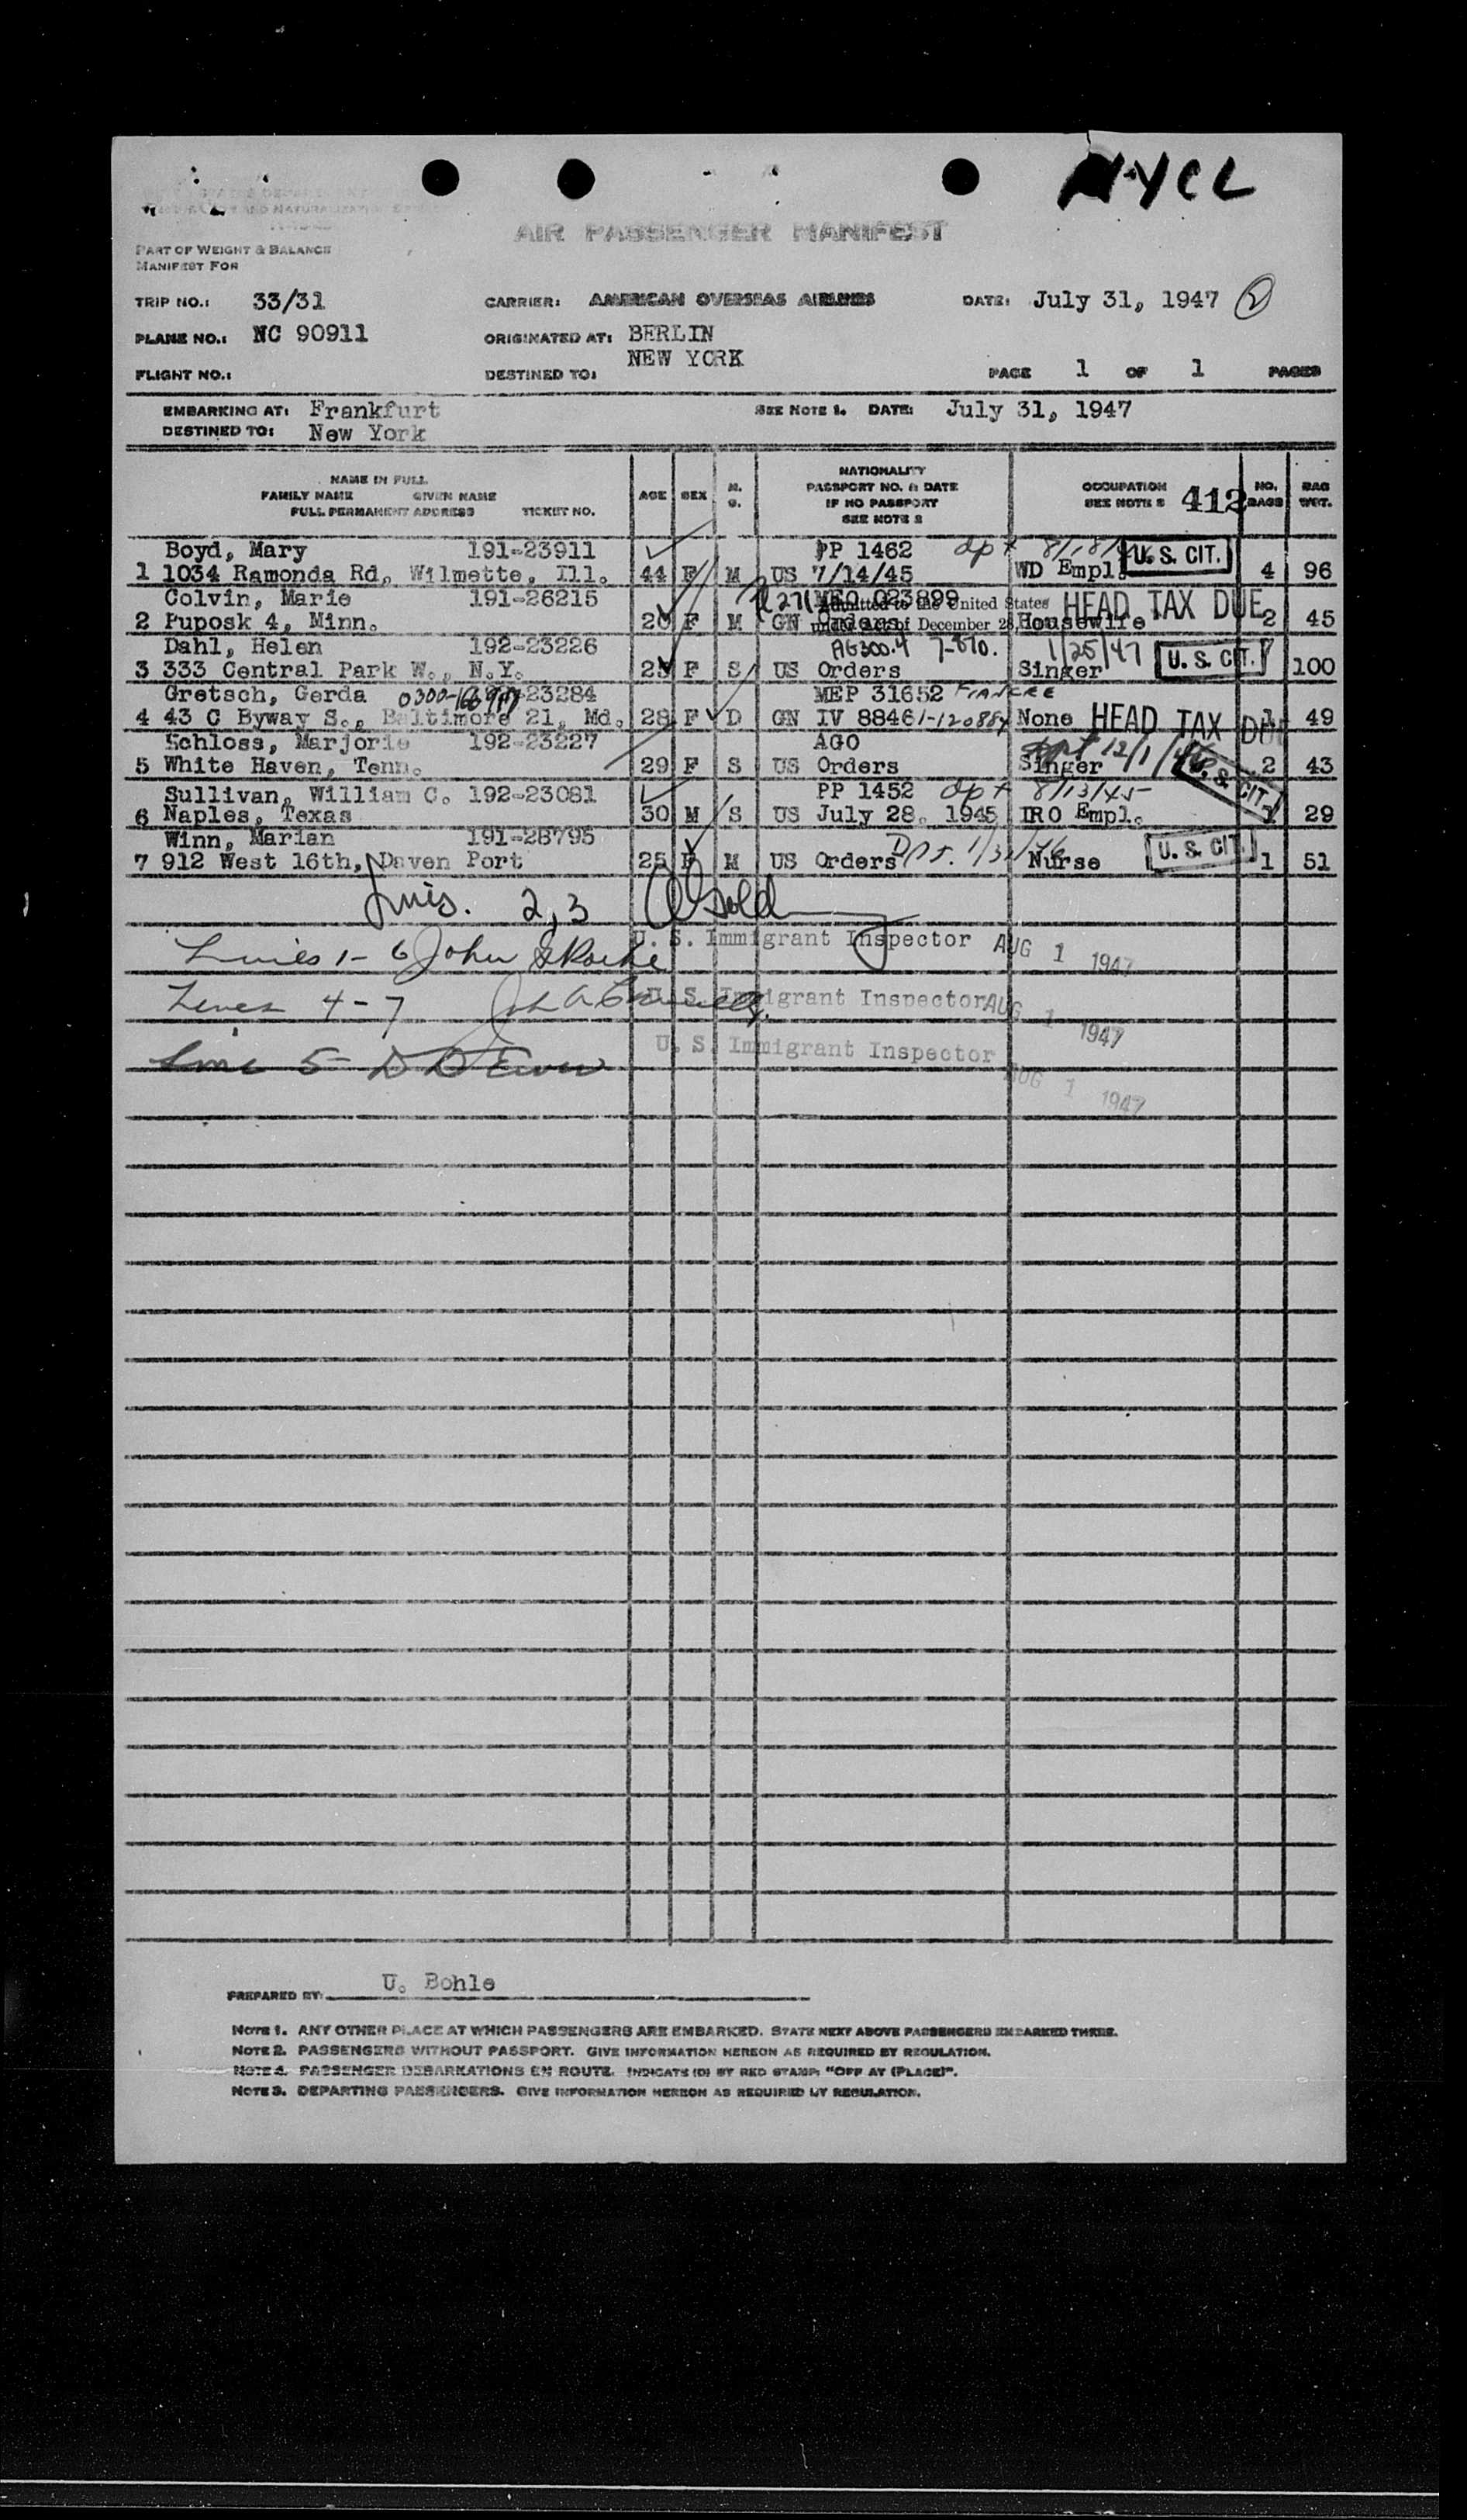 NYCL
AIR PASSENGER MANIFEST
PART OF WEIGHT & BALANCE
MANIFEST FOR
TRIP NO.: 33/31 CARRIER: AMERICAN OVERSEAS AIRLINES DATE: July 31, 1947 2
PLANE NO.: NC 90911 ORIGINATED AT: BERLIN
NEW YORK
FLIGHT NO.: DESTINED TO: PAGE 1 OF 1 PAGES
EMBARKING AT: Frankfurt SEE NOTE 1. DATE: July 31, 1947
DESTINED TO: New York
NAME IN FULL
FAMILY NAME GIVEN NAME
FULL PERMANENT ADDRESS TICKET NO.
AGE SEX M. S.
NATIONALITY
PASSPORT NO. & DATE
IF NO PASSPORT
SEE NOTE 2
OCCUPATION
SEE NOTE 2 412
NO. BAGS BAG WGT.
Boyd, Mary 191-23911 PP 1462 dpt U. S. CIT.
1 1034 Ramonda Rd, Wilmette, Ill. 44 F M US 7/14/45 WD Empl. 4 96
Colvin, Marie 191-26215 MEO 023899 Admitted to the United States HEAD TAX DUE
2 Puposk 4, Minn. 20 F M GN Orders of December 28 Housewife 2 45
Dahl, Helen 192-23226 AG300.4 1/25/47 U. S. CIT.
3 333 Central Park W., N.Y. 25 F S US Orders Singer 100
Gretsch, Gerda 23284 MEP 31652 FIANCEE
4 43 C Byway S., Baltimore 21, Md. 28 F D GN IV 8846 None HEAD TAX DUE 1 49
Schloss, Marjorie 192-23227 AGO 12/1/46
5 White Haven, Tenn. 29 F S US Orders Singer U. S. CIT. 2 43
Sullivan, William C. 192-23081 PP 1452 dpt 8/13/45
6 Naples, Texas 30 M S US July 28, 1945 IRO Empl. 1 29
Winn, Marian 191-28795 U. S. CIT.
7 912 West 16th, Daven Port 25 F M US Orders Nurse 1 51
Lines. 2, 3
U. S. Immigrant Inspector AUG 1 1947
Lines 1-6 John
Lines 4-7 U. S. Immigrant Inspector AUG 1 1947
Line 5
U. S. Immigrant Inspector AUG 1 1947
PREPARED BY: U. Bohle
NOTE 1. ANY OTHER PLACE AT WHICH PASSENGERS ARE EMBARKED. STATE NEXT ABOVE PASSENGERS EMBARKED THERE.
NOTE 2. PASSENGERS WITHOUT PASSPORT. GIVE INFORMATION HEREON AS REQUIRED BY REGULATION.
NOTE 4. PASSENGER DEBARKATIONS EN ROUTE. INDICATE (D) BY RED STAMP: "OFF AT (PLACE)".
NOTE 3. DEPARTING PASSENGERS. GIVE INFORMATION HEREON AS REQUIRED BY REGULATION.